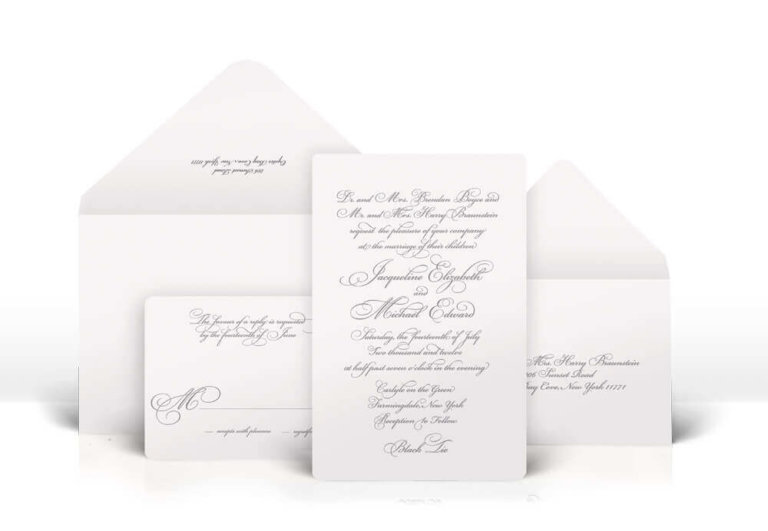 Dr. and Mrs. Brendan Boyce and
Mr. and Mrs. Harry Braunstein
request the pleasure of your company
at the marriage of their children
Jacqueline Elizabeth
and
Michael Edward
Saturday, the fourteenth of July
Two thousand and twelve
at half past seven o'clock in the evening
Carlyle on the Green
Farmingdale, New York
Reception to Follow
Black Tie
The favour of a reply is requested
by the fourteenth of June
M
accepts with pleasure
Mrs. Harry Braunstein
Sunset Road
Cove, New York 11771